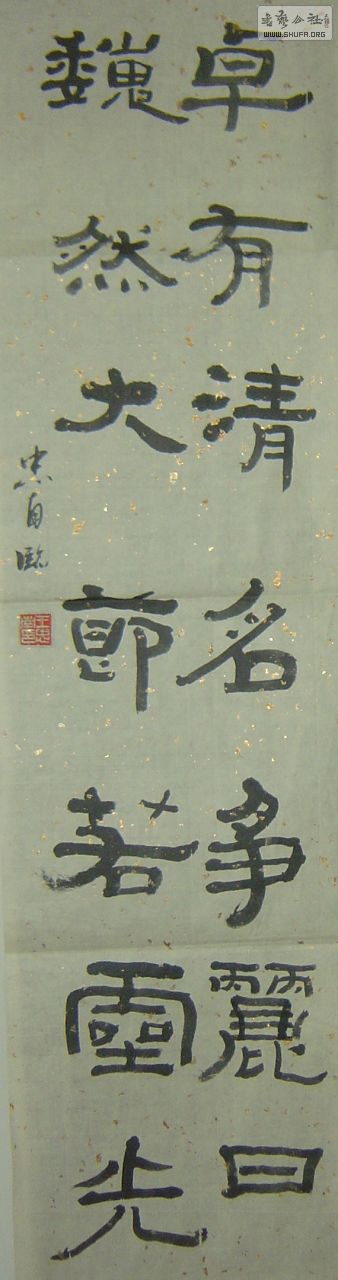 书艺公社
WWW.SHUFA.ORG
卓有清名争麗日
巍然大節若靈光